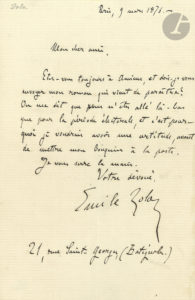 Zola
Paris, 9 mars 1876.
Mon cher ami,
Etes-vous toujours à Amiens, et dois-je vous
envoyer mon roman qui vient de paraître?
On me dit que vous n'êtes allé là-bas
que pour la période électorale, et c'est pour-
quoi je voudrais avoir une certitude avant
de mettre mon bouquin à la poste.
Je vous serre la main.
Votre dévoué
Emile Zola
21, rue Saint-Georges (Batignolles)